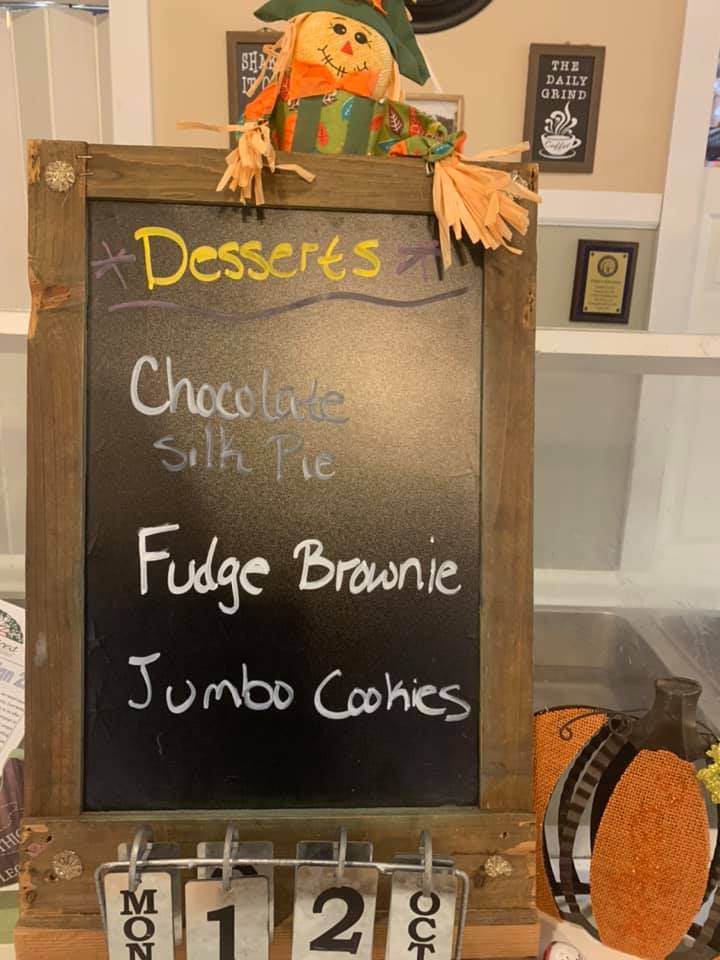 THE
DAILY
GRIND
Coffee
* Desserts *
Chocolate
Silk Pie
Fudge Brownie
Jumbo Cookies
MON 12 OCT